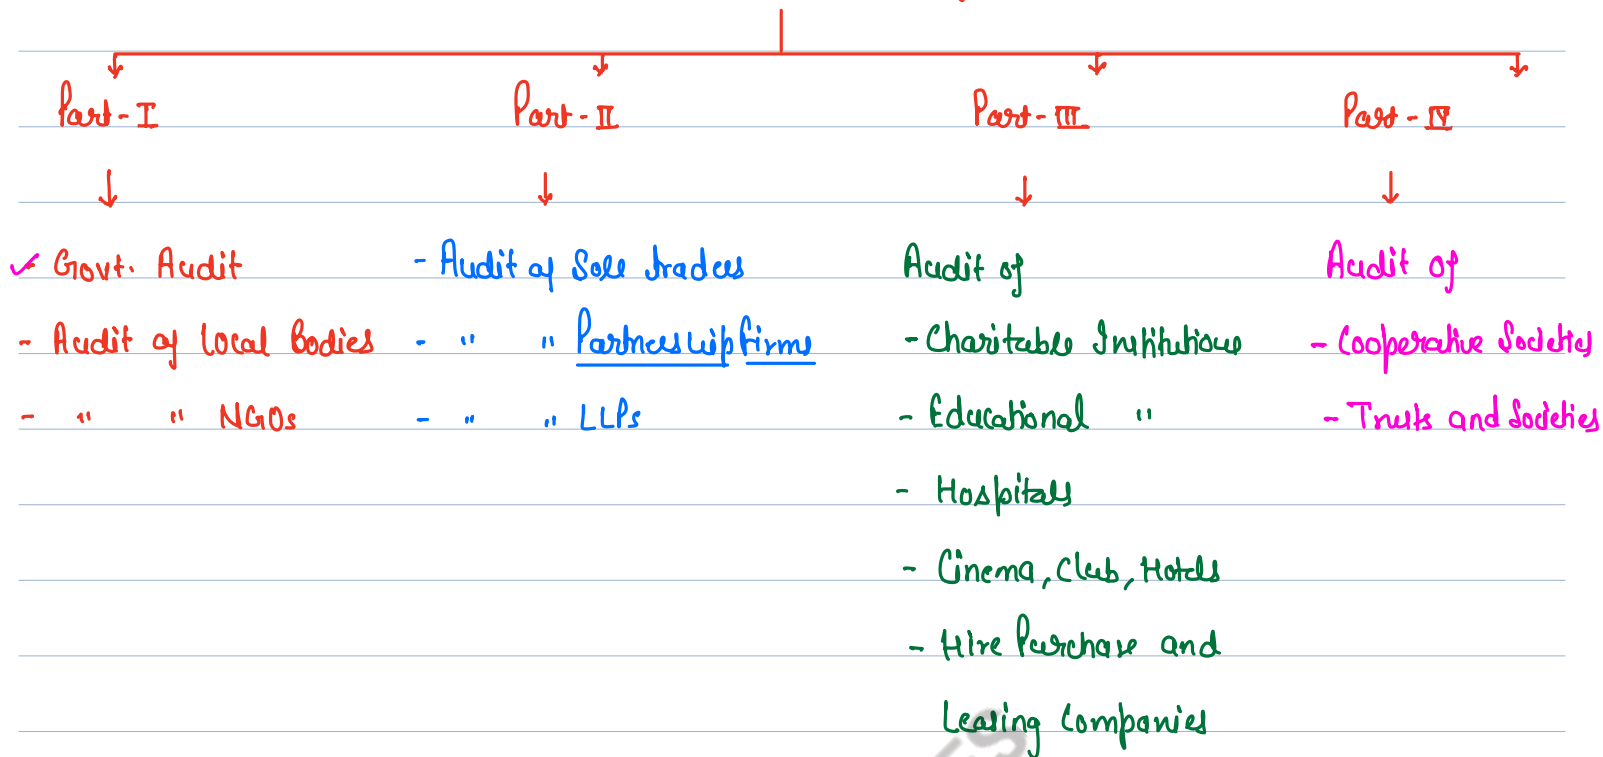 Part-I
Part-II
Part-III
Part-IV
- Govt. Audit
- Audit of Local Bodies
- " " NGOs
- Audit of Sole traders
- " " Partnership firms
- " " LLPs
Audit of
- Charitable Institutions
- Educational "
- Hospitals
- Cinema, Club, Hotels
- Hire Purchase and
Leasing Companies
Audit of
- Cooperative Societies
- Trusts and Societies